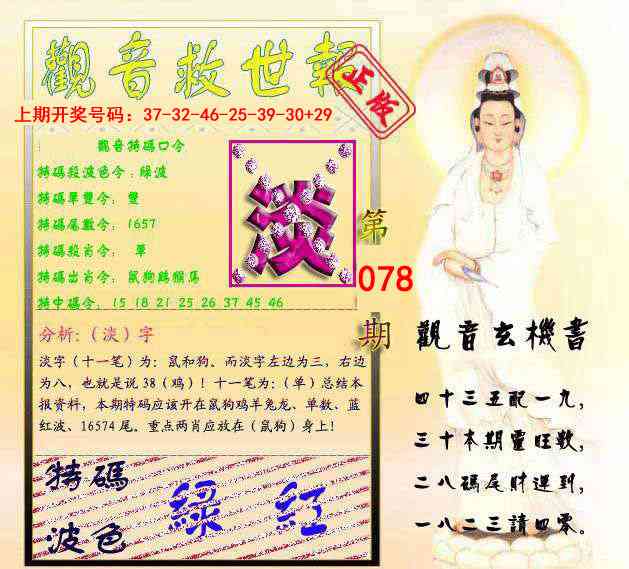 觀音救世報
正版
上期开奖号码：37-32-46-25-39-30+29
觀音特碼口令
特碼殺波色令：綠波
特碼單雙令： 雙
特碼尾數令： 1657
特碼殺肖令： 單
特碼出肖令： 鼠狗鷄猴馬
特中碼令： 15 18 21 25 26 37 45 46
淡
第
078
期
分析:（淡）字
淡字（十一笔）为：鼠和狗、而淡字左边为三，右边
为八，也就是说 38（鸡）！十一笔为：（单）总结本
报资料，本期特码应该开在鼠狗鸡羊兔龙、单数、蓝
红波、16574 尾。重点两肖应放在（鼠狗）身上！
特碼
波色
綠 紅
觀音玄機書
四十三五配一九，
三十本期靈旺数，
二八碼尾財運到，
一八二三請四零。